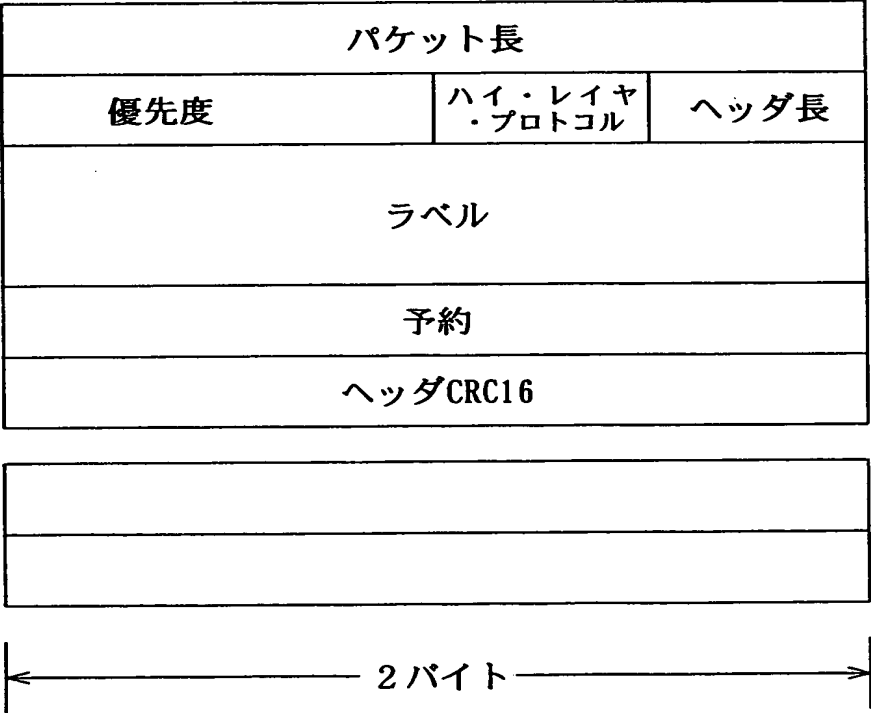 パケット長
優先度
ハイ・レイヤ
・プロトコル
ヘッダ長
ラベル
予約
ヘッダCRC16
2バイト